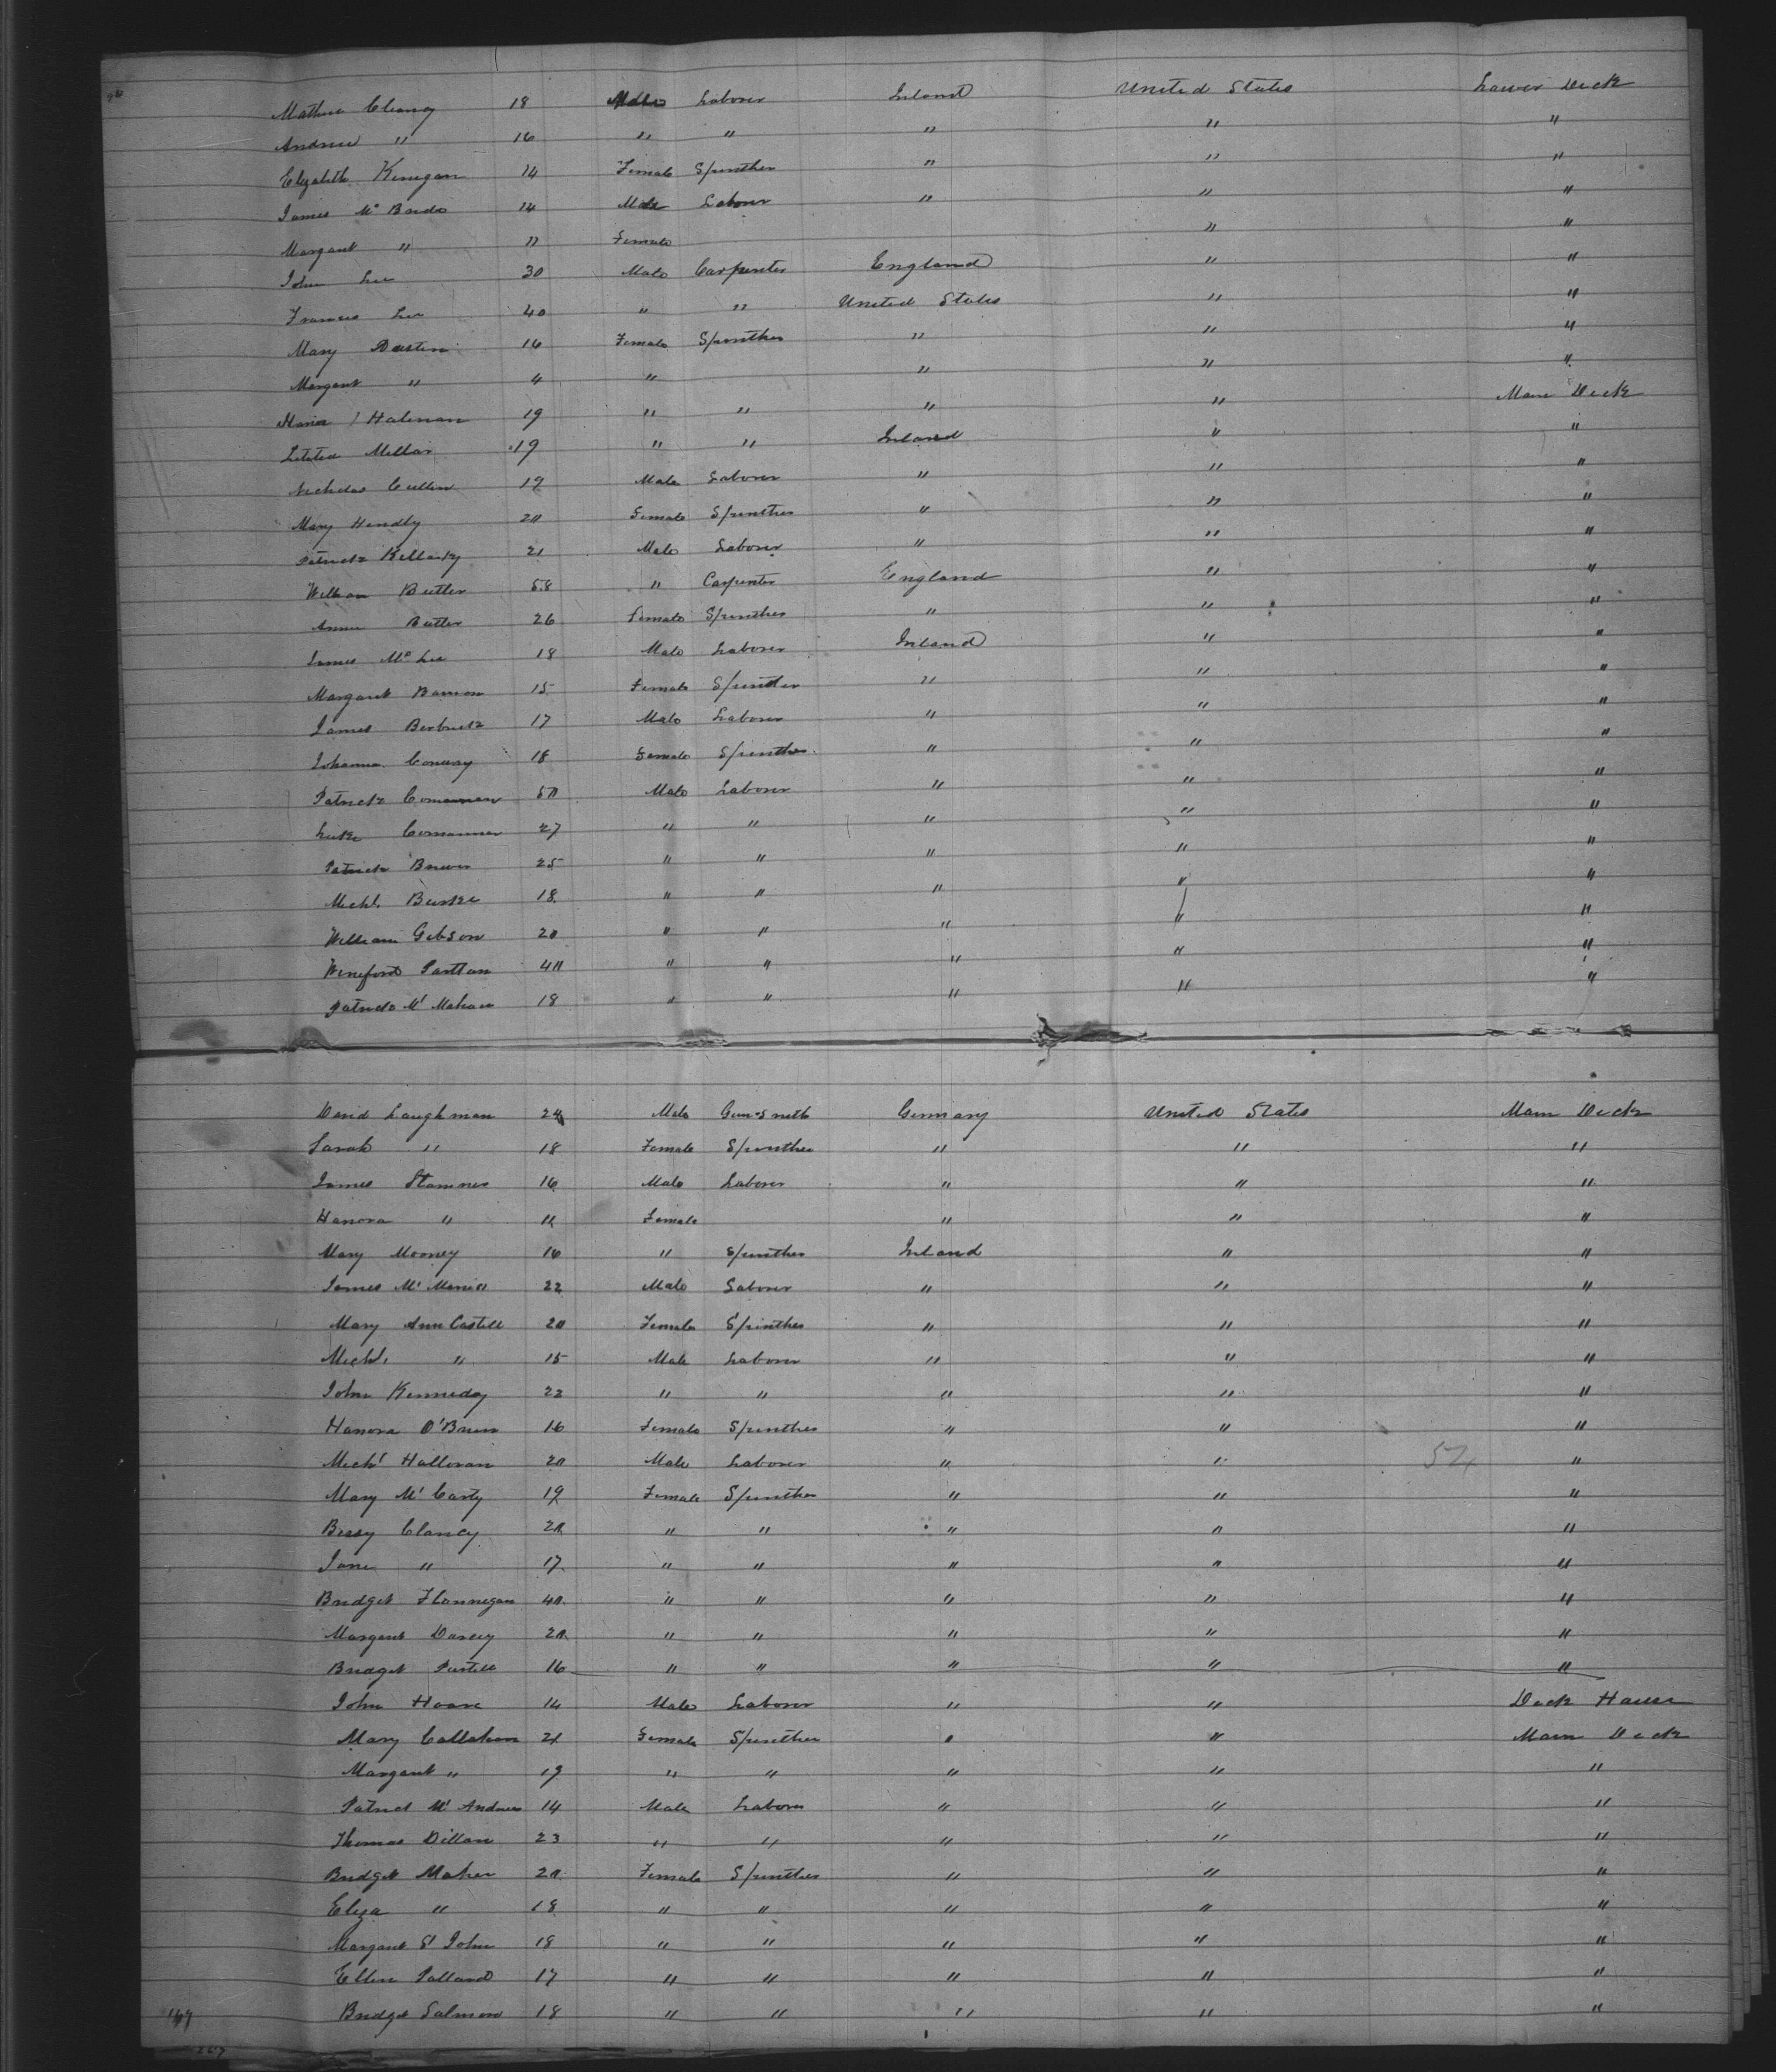 Mathew Clancy 18 Male Laborer Ireland United States Lower Deck
Andrew " 16 " " " " "
Elizabeth Kenegan 14 Female Spinster " " "
James Mc Brido 14 Male Laborer " " "
Margaret " " Female " "
John Lee 30 Male Carpenter England " "
Frances Lee 40 " " United States " "
Mary Dustin 16 Female Spinster " " "
Margaret " 4 " " " "
Halman 19 " " " " Main Deck
Letitia Millar 19 " " Ireland " "
Nicholas Cullin 19 Male Laborer " " "
Mary Hendly 20 Female Spinster " " "
Patrick 21 Male Laborer " " "
William Butler 58 " Carpenter England " "
Annie Butler 26 Female Spinster " " "
James Mc Lee 18 Male Laborer Ireland " "
Margaret Bannon 15 Female Spinster " " "
James 17 Male Laborer " " "
Johanna Conway 18 Female Spinster " " "
Patrick 50 Male Laborer " " "
Luke 27 " " " " "
Patrick 25 " " " " "
Michl. Burke 18 " " " " "
William Gibson 20 " " " " "
Winiford 40 " " " " "
Patrick Mc Mahan 18 " " " " "
David Laughman 24 Male Gun-Smith Germany United States Main Deck
Sarah " 18 Female Spinster " " "
James Stamner 16 Male Laborer " " "
Hanora " 11 Female " " "
Mary Mooney 16 " Spinster Ireland " "
James Mc 22 Male Laborer " " "
Mary Ann Castell 20 Female Spinster " " "
Michl. " 15 Male Laborer " " "
John Kennedy 22 " " " " "
Hanora O'Brien 16 Female Spinster " " "
Michl Halloran 20 Male Laborer " " "
Mary Mc Carty 19 Female Spinster " " "
Bessy Clancy 20 " " " " "
Jane " 17 " " " " "
Bridget Flannegan 40 " " " " "
Margaret Darcey 20 " " " " "
Bridget 16 " " " " "
John Hoare 14 Male Laborer " " Deck House
Mary Callahan 21 Female Spinster " " Main Deck
Margaret " 19 " " " " "
Patrick Mc Andrews 14 Male Laborer " " "
Thomas Dillan 23 " " " " "
Bridget Maher 20 Female Spinster " " "
Eliza " 18 " " " " "
Margaret St John 18 " " " " "
Ellen Pallard 17 " " " " "
Bridget Salmon 18 " " " " "